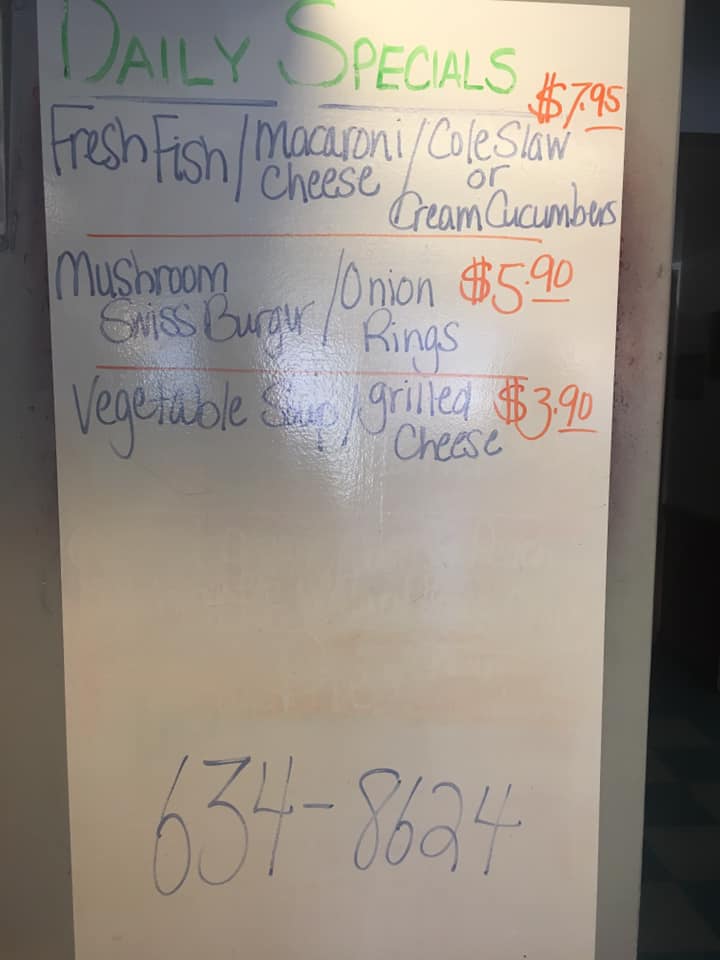 DAILY SPECIALS
$7.95
Fresh Fish / Macaroni / Cole Slaw
Cheese or
Cream Cucumbers
Mushroom / Onion $5.90
Swiss Burgur Rings
Vegetable Soup / grilled $3.90
Cheese
634-8624